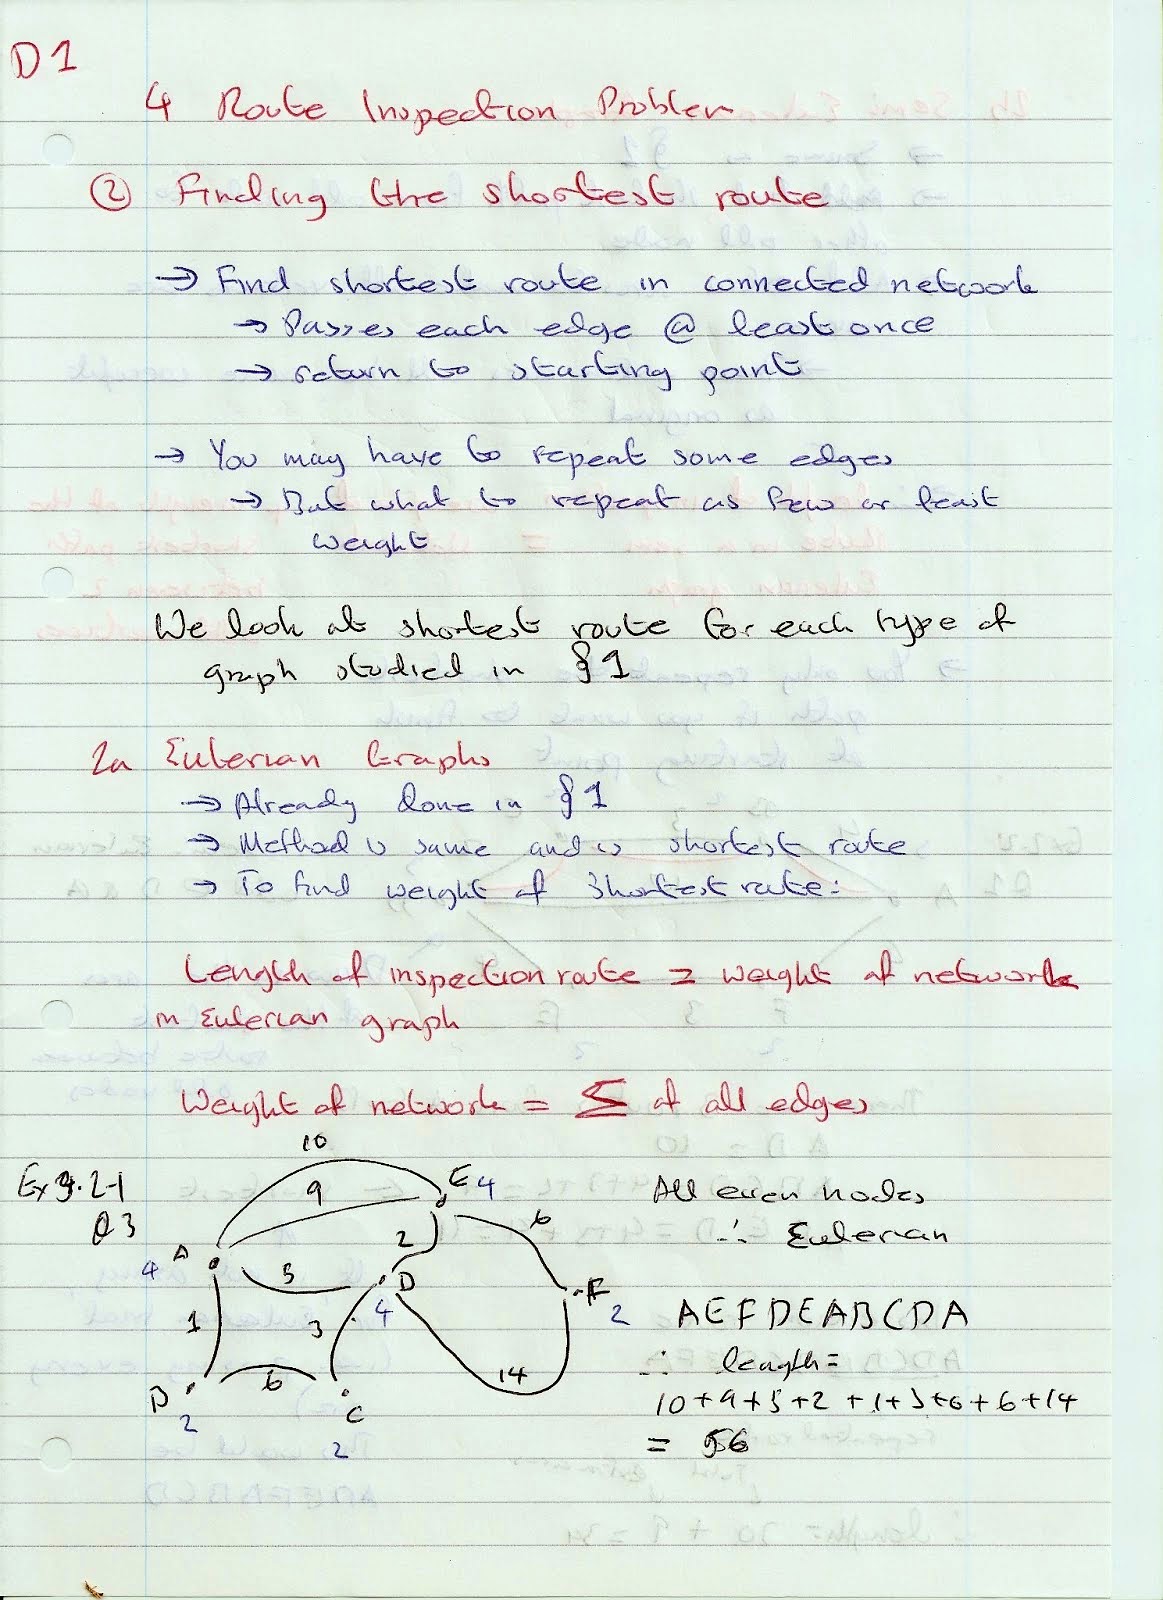 D1
4 Route Inspection Problem
② Finding the shortest route
→ Find shortest route in connected network
→ Passes each edge @ least once
→ return to starting point
→ You may have to repeat some edges
→ But what to repeat as few or least
weight
We look at shortest route for each type of
graph studied in §1
2a Eulerian Graphs
→ Already done in §1
→ Method is same and is shortest route
→ To find weight of shortest route:
Length of inspection route = weight of network
in Eulerian graph
Weight of network = Σ of all edges
Ex 4.2-1
Q3
10
9
E 4
6
A
4
2
5
D
4
F
2
1
3
14
B
2
6
C
2
All even nodes
∴ Eulerian
AEFDEABCDA
∴ length =
10+9+5+2+1+3+6+6+14
= 56